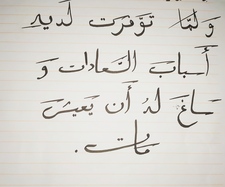 ولمّا توفرت لديه
أسباب السّعادات و
ساغ له أن يعيش
مات .